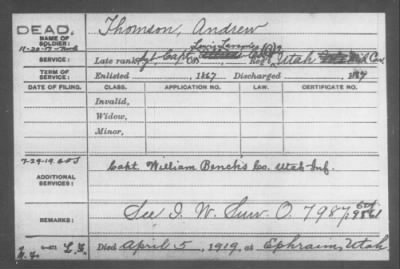 DEAD,
Thomson, Andrew
NAME OF SOLDIER:
11-20-17
SERVICE:
Late rank Capt. Co. Reg't Utah Cav,
TERM OF SERVICE:
Enlisted , 1867 Discharged
DATE OF FILING. CLASS. APPLICATION NO. LAW. CERTIFICATE NO.
Invalid,
Widow,
Minor,
7-29-19
ADDITIONAL SERVICES:
Capt. William Bench's Co. Utah Inf.
REMARKS:
See I. W. Surv. O. 7987
Died April 5, 1919, at Ephraim, Utah